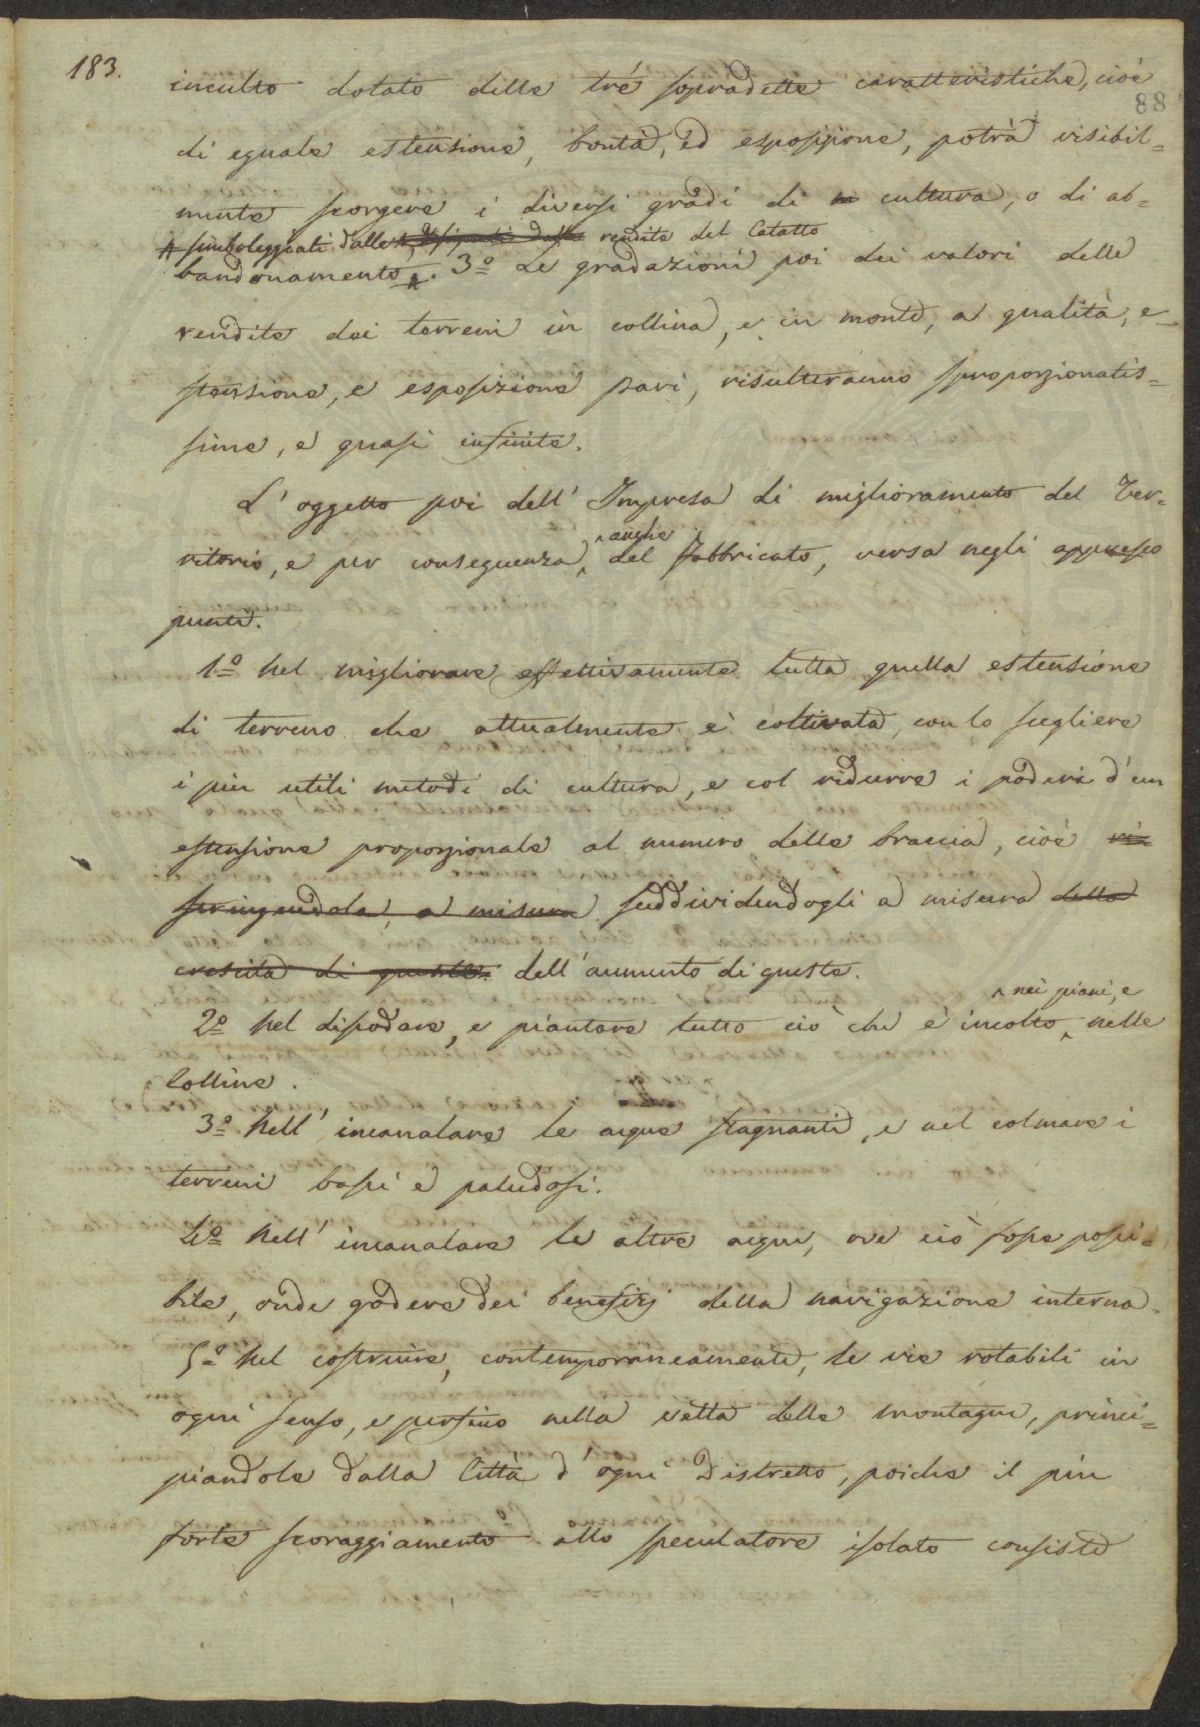 183.
inculto dotato delle tré sopradette caratteristiche, cioè
88
di eguale estensione, bontà, ed esposizione, potrà visibil=
mente scorgere i diversi gradi di cultura, o di ab=
A simboleggiati dalle rendite del Catasto
bandonamento A. 3º Le gradazioni poi dei valori delle
rendite dei terreni in collina, e in monte, a qualità, e=
stensione, e esposizione pari, risulteranno sproporzionatis=
sime, e quasi infinite.
L'oggetto poi dell'Impresa di miglioramento del Ter=
ritorio, e per conseguenza, anche del fabbricato, versa negli appresso
punti.
1º Nel migliorare effettivamente tutta quella estensione
di terreno che attualmente è coltivata, con lo scegliere
i più utili metodi di cultura, e col ridurre i poderi d'un
estensione proporzionale al numero delle braccia, cioè ri=
stringendola, a misura suddividendogli a misura della
crescita di queste. dell'aumento di queste.
2º Nel dissodare, e piantare tutto ciò che è incolto nei piani, e nelle
Colline.
3º Nell'incanalare le acque stagnanti, e nel colmare i
terreni bassi e paludosi.
4º Nell'incanalare le altre acque, ove ciò fosse possi=
bile, onde godere dei benefizj della navigazione interna.
5º Nel costruire, contemporaneamente, le vie rotabili in
ogni senso, e perfino nella vetta delle montagne, princi=
piandole dalla Città d'ogni Distretto, poiche il più
forte scoraggiamento allo speculatore isolato consiste